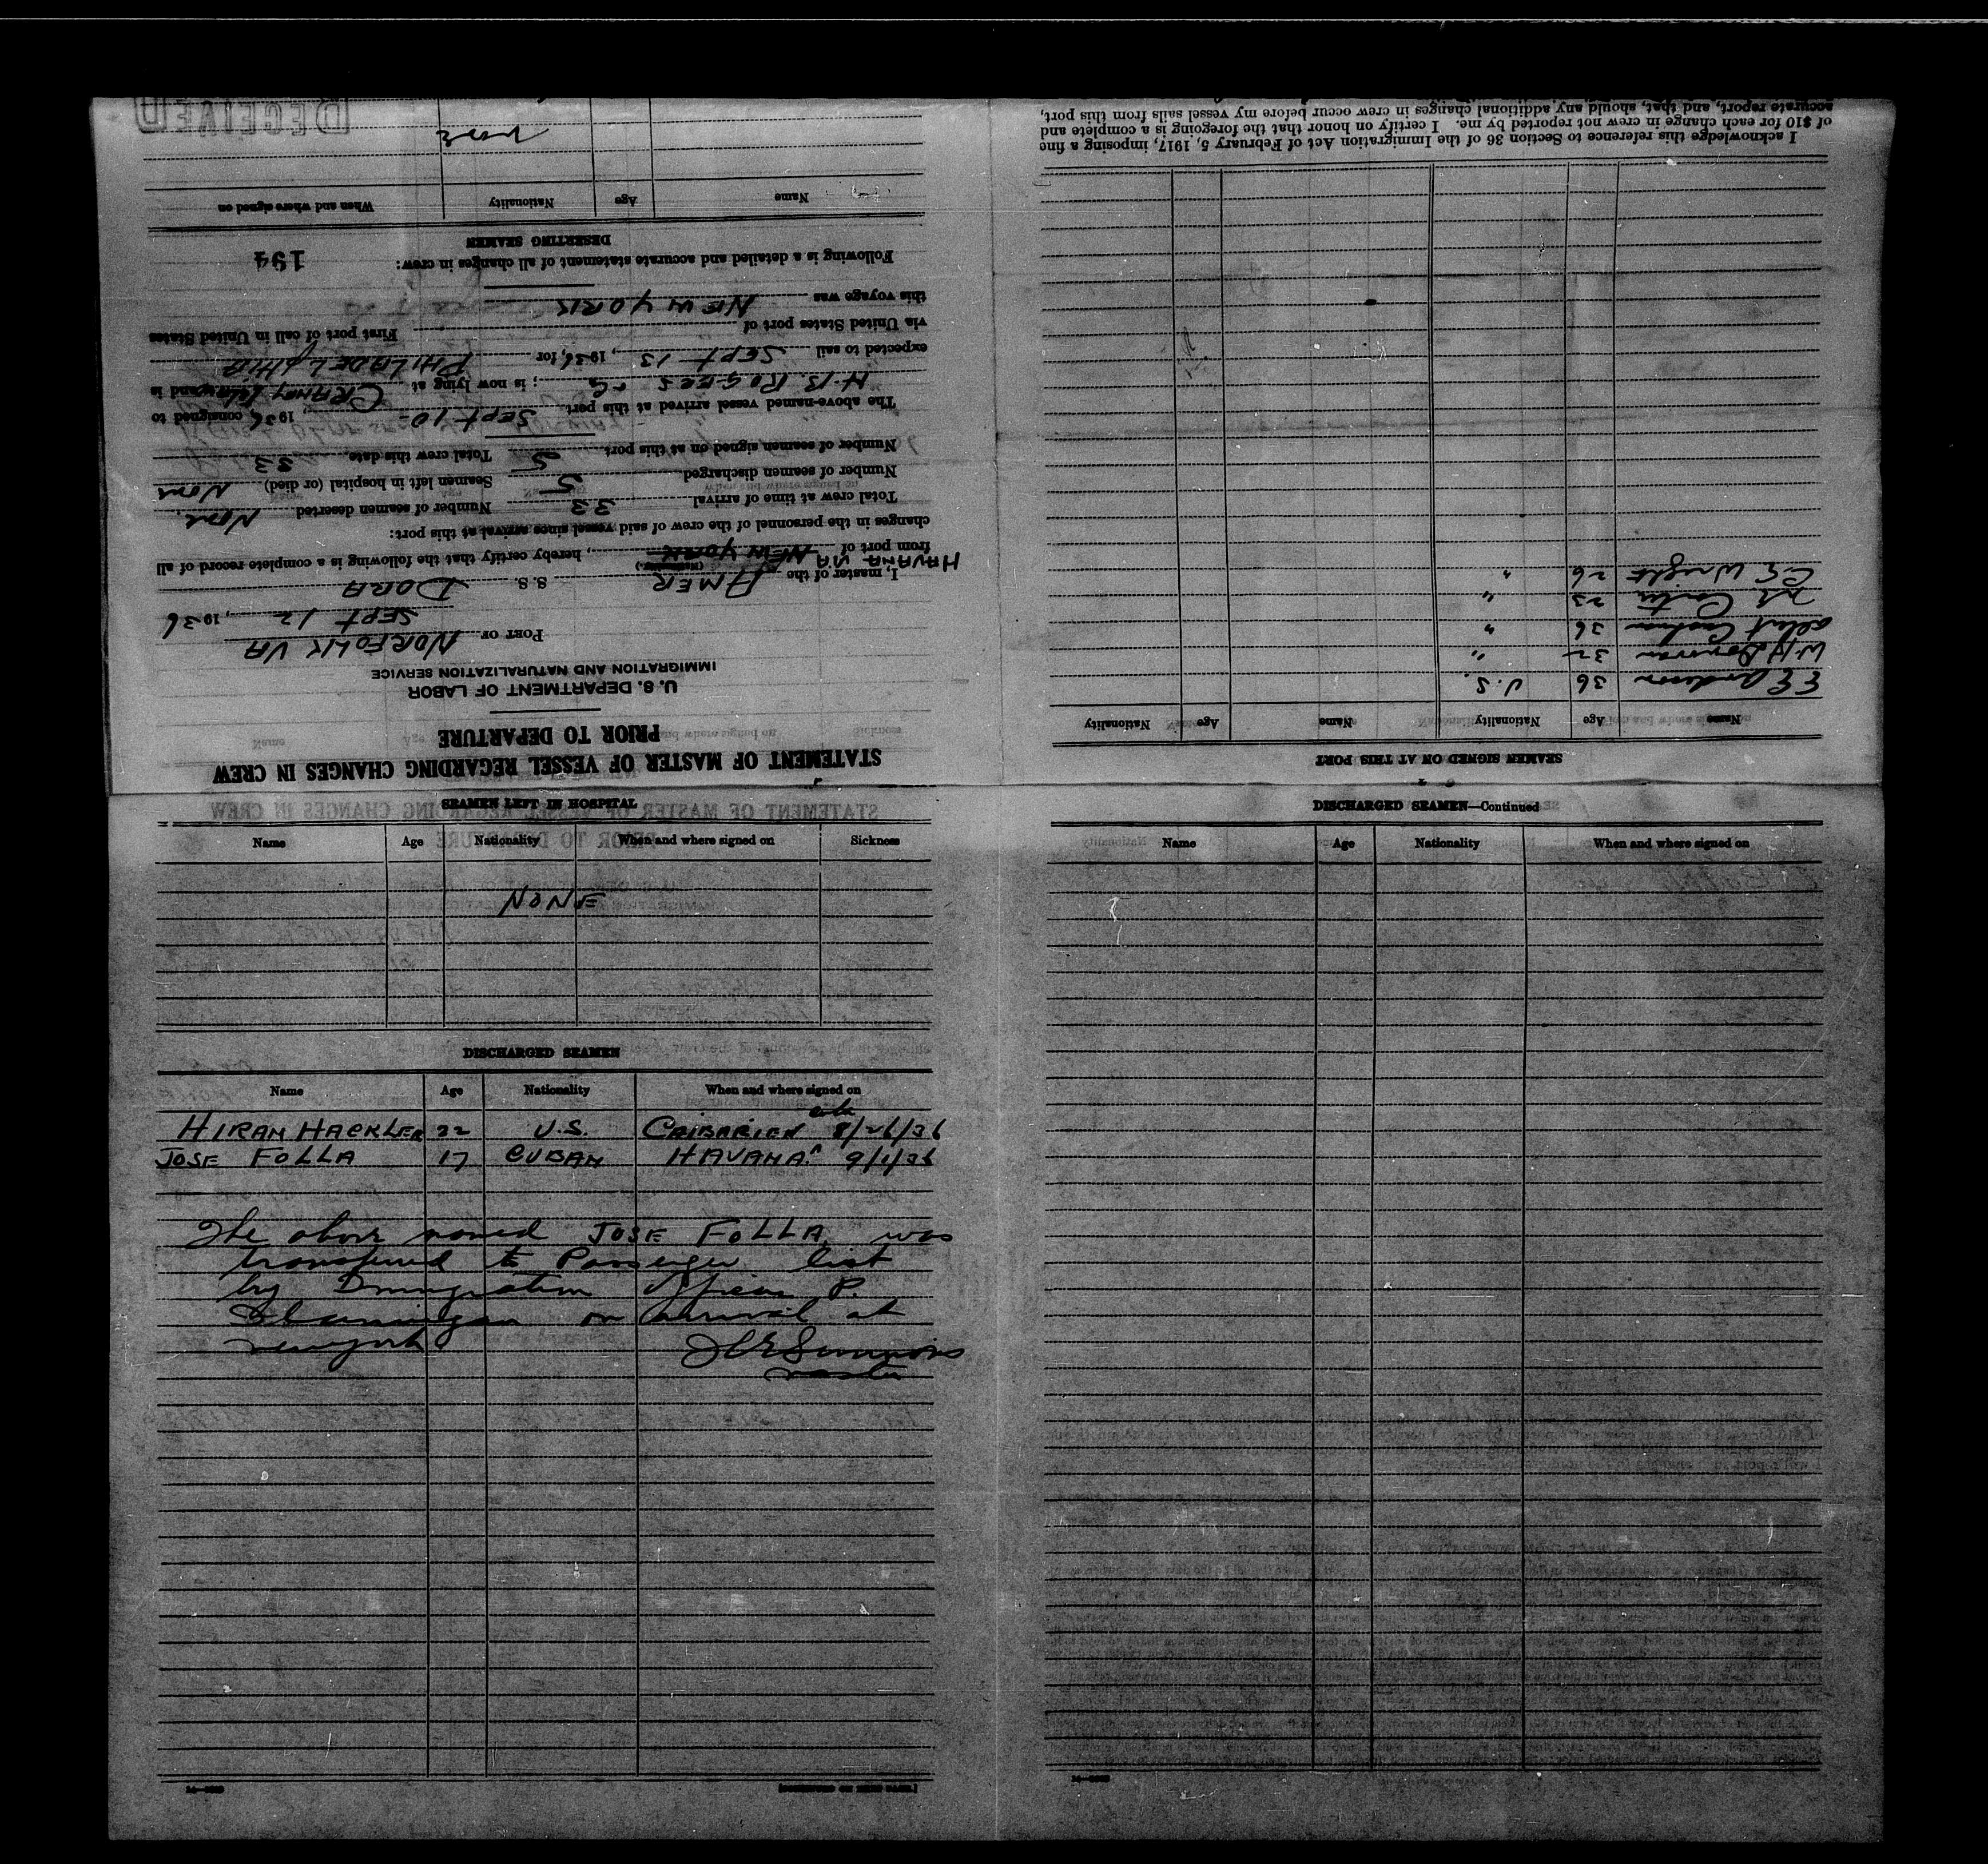 STATEMENT OF MASTER OF VESSEL REGARDING CHANGES IN CREW
PRIOR TO DEPARTURE
U. S. DEPARTMENT OF LABOR
IMMIGRATION AND NATURALIZATION SERVICE
PORT OF NORFOLK VA
SEPT 12, 1936
I, master of the AMER S. S. DORA
(Nationality)
HAVANA VIA
from port of NEW YORK, hereby certify that the following is a complete record of all
changes in the personnel of the crew of said vessel since arrival at this port:
Total crew at time of arrival 33 Number of seamen deserted None
Number of seamen discharged 5 Seamen left in hospital (or died) None
Number of seamen signed on at this port 5 Total crew this date, 33
The above-named vessel arrived at this port SEPT 10-, 1936, consigned to
H. B. ROGERS Co; is now lying at CRANEY Island and is
expected to sail SEPT 13, 1936, for PHILADELPHIA
via United States port of First port of call in United States
this voyage was NEW YORK
Following is a detailed and accurate statement of all changes in crew: 194
DESERTING SEAMEN
Name Age Nationality When and where signed on
None
RECEIVED
SEAMEN SIGNED ON AT THIS PORT
Name Age Nationality Name Age Nationality
E E Anderson 36 U.S.
W. H. Donovan 32 "
Albert 36 "
Carter 23 "
C. E. Wright 26 "
I acknowledge this reference to Section 36 of the Immigration Act of February 5, 1917, imposing a fine
of $10 for each change in crew not reported by me. I certify on honor that the foregoing is a complete and
accurate report, and that, should any additional changes in crew occur before my vessel sails from this port,
SEAMEN LEFT IN HOSPITAL
Name Age Nationality When and where signed on Sickness
NONE
DISCHARGED SEAMEN
Name Age Nationality When and where signed on
HIRAM HACKLER 22 U.S. CAIBARIEN 8/26/36
JOSE FOLLA 17 CUBAN HAVANA 9/1/36
The above named JOSE FOLLA was
transfered to Passenger list
by Immigration Officer P.
on arrival at
New york
Master
DISCHARGED SEAMEN—Continued
Name Age Nationality When and where signed on